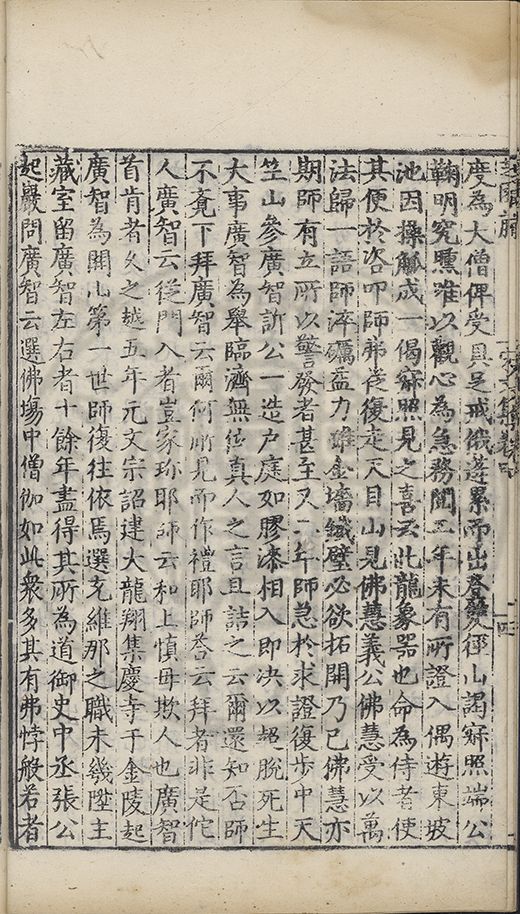 度為大僧俾受具足戒俄蓬累而出登雙徑山謁寂照端公
鞠明究曛唯以觀心為急務閱五年未有所證入偶遊東坡
池因操觚成一偈寂照見之喜云此龍象器也命為侍者使
其便於咨叩師弗從復走天目山見佛慧義公佛慧受以萬
法歸一語師淬礪益力雖金墻鐵壁必欲拓開乃已佛慧亦
期師有立所以警發者甚至又二年師急於求證復步中天
竺山參廣智訢公一造戶庭如膠漆相入即決以超脫死生
大事廣智為舉臨濟無位真人之言且詰之云爾還知否師
不覺下拜廣智云爾何所見而作禮耶師荅云拜者非是佗
人廣智云從門入者豈家珍耶師云和上慎毋欺人也廣智
首肯者久之越五年元文宗詔建大龍翔集慶寺于金陵起
廣智為開山第一世師復往依焉選充維那之職未幾陞主
藏室留廣智左右者十餘年盡得其所為道御史中丞張公
起巖問廣智云選佛場中僧伽如此衆多其有弗悖般若者